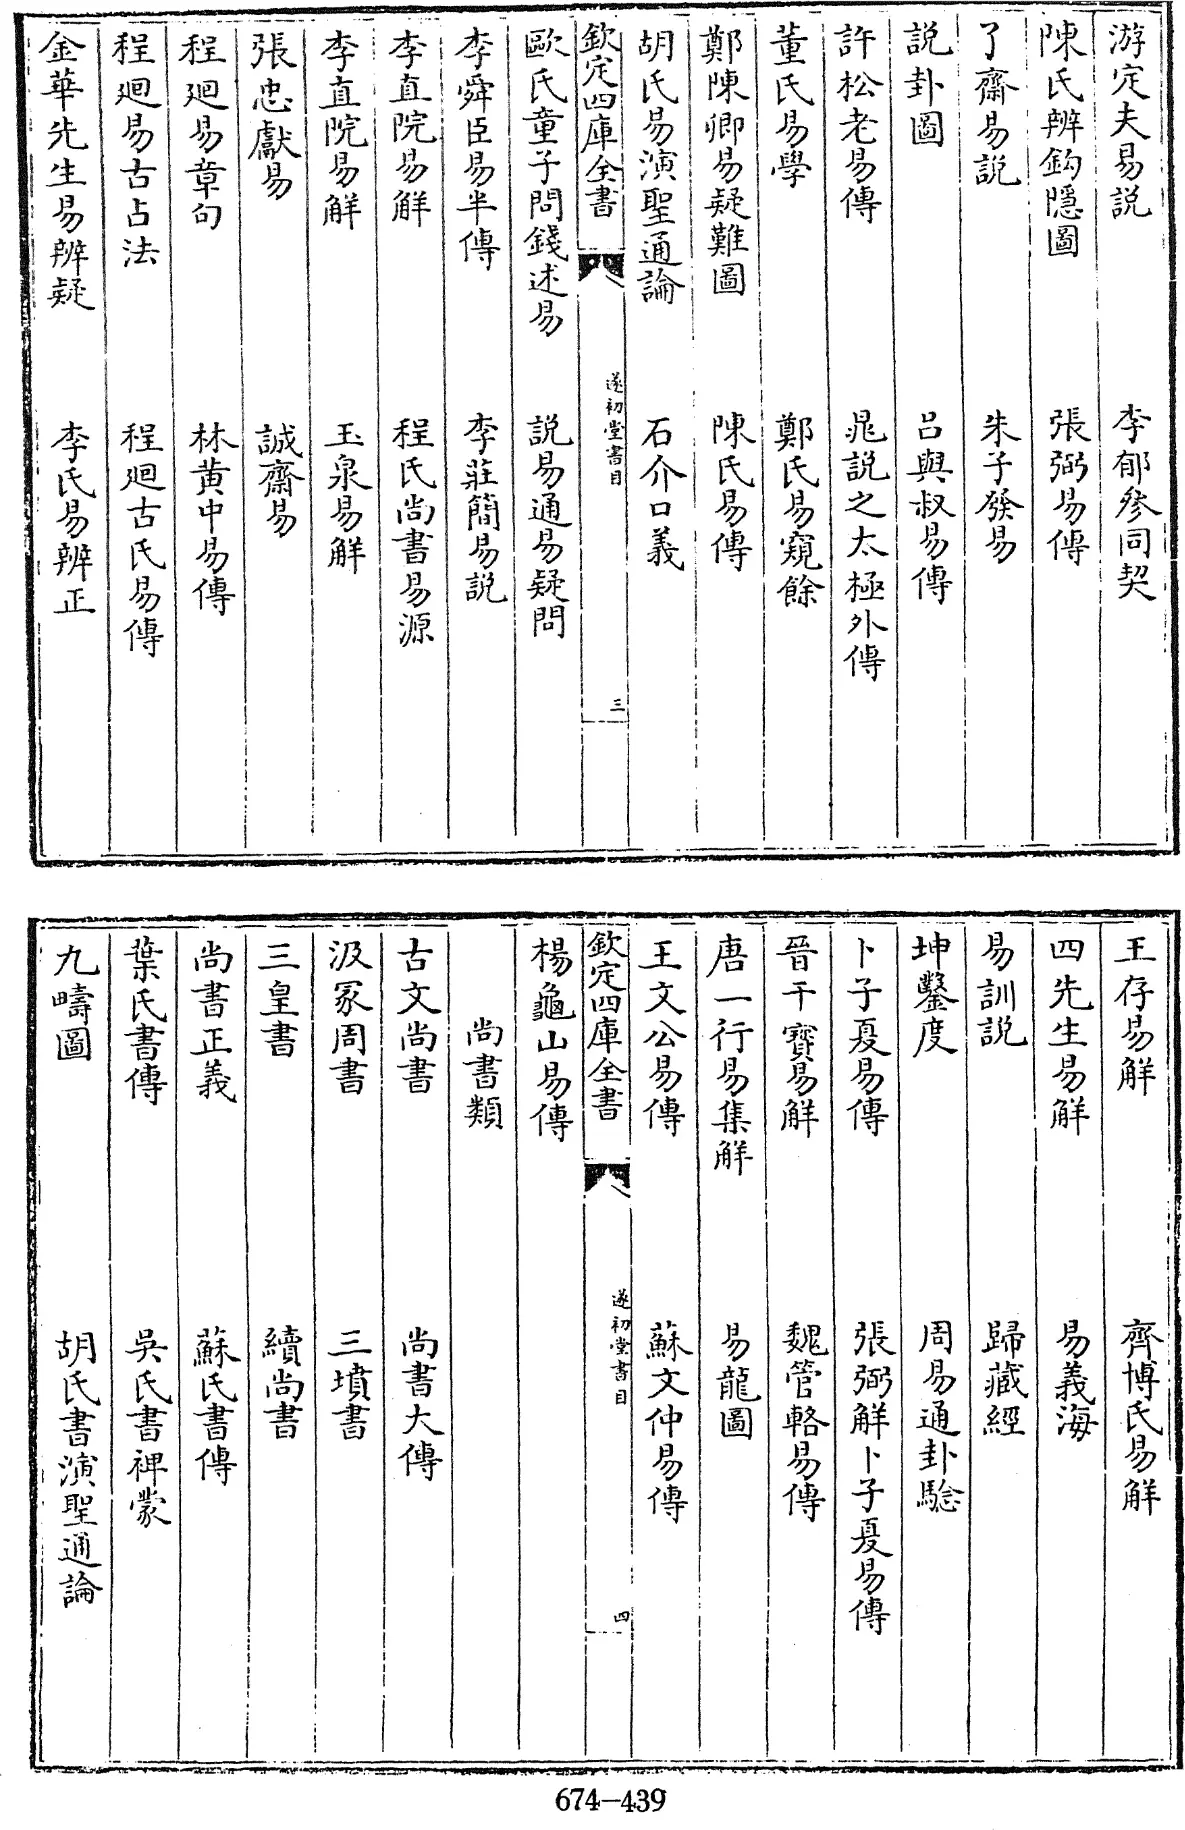 游定夫易説　李郁參同契
陳氏辨鈎隱圖　張弼易傳
了齋易説　朱子發易
説卦圖　吕與叔易傳
許松老易傳　晁説之太極外傳
董氏易學　鄭氏易窺餘
鄭陳卿易疑難圖　陳氏易傳
胡氏易演聖通論　石介口義
欽定四庫全書　遂初堂書目　三
歐氏童子問錢述易　説易通易疑問
李舜臣易半傳　李莊簡易説
李直院易解　程氏尚書易源
李直院易解　玉泉易解
張忠獻易　誠齋易
程迥易章句　林黄中易傳
程迥易古占法　程迥古氏易傳
金華先生易辨疑　李氏易辨正
王存易解　齊博氏易解
四先生易解　易義海
易訓説　歸藏經
坤鑿度　周易通卦驗
卜子夏易傳　張弼解卜子夏易傳
晉干寶易解　魏管輅易傳
唐一行易集解　易龍圖
王文公易傳　蘇文仲易傳
欽定四庫全書　遂初堂書目　四
楊龜山易傳
尚書類
古文尚書　尚書大傳
汲冢周書　三墳書
三皇書　續尚書
尚書正義　蘇氏書傳
葉氏書傳　吳氏書裨蒙
九疇圖　胡氏書演聖通論
674-439